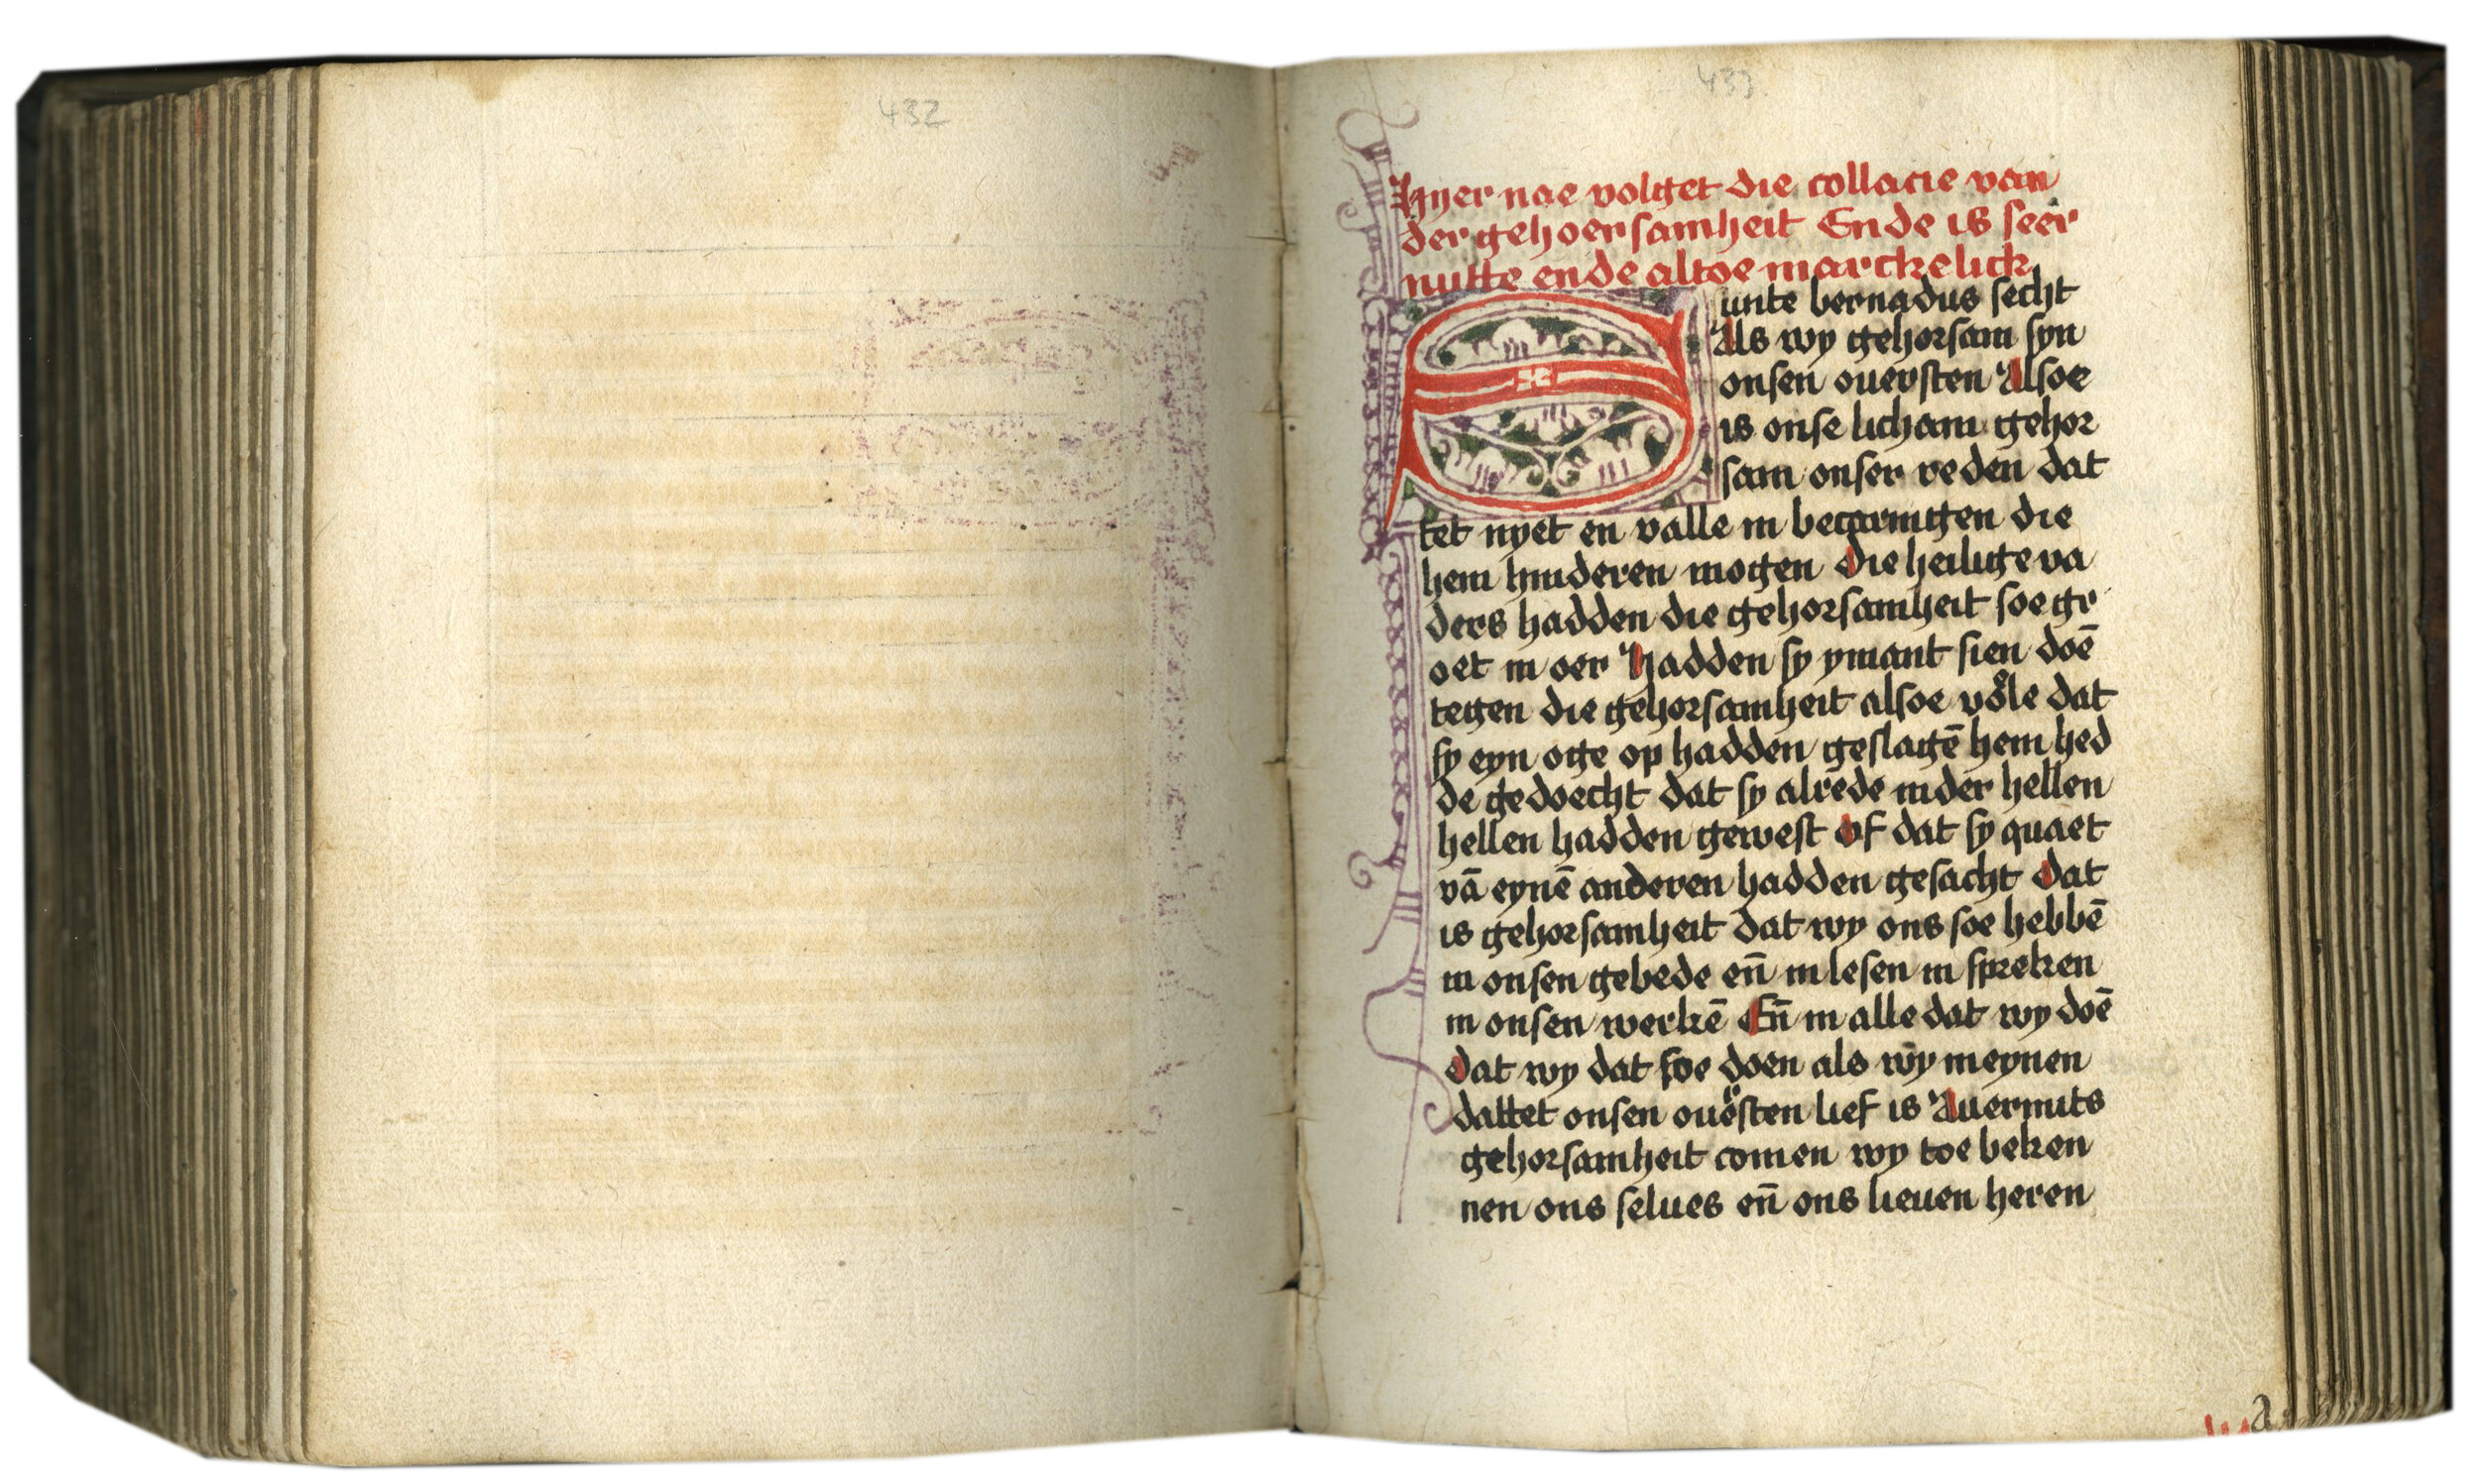 432
433
Hyer nae volget die collacie van
der gehoersamheit Ende is seer
nutte ende altoe marckelick
Sunte bernadus secht
Als wy gehorsam syn
onsen ouersten Alsoe
is onse licham gehor
sam onser reden dat
tet nyet en valle in becaringen die
hem hinderen mogen Die heilige va
ders hadden die gehorsamheit soe gr
oet in oer Hadden sy ymant sien doē
tegen die gehorsamheit alsoe voͤle dat
sy eyn oge op hadden geslagē hem hed
de gedoecht dat sy alrede inder hellen
hellen hadden gewest Of dat sy quaet
vā eynē anderen hadden gesacht Dat
is gehorsamheit dat wy ons soe hebbē
in onsen gebede en̄ in lesen in spreken
in onsen werkē En̄ in alle dat wy doē
Dat wy dat soe doen als wy meynen
dattet onsen ouersten lief is Auermits
gehorsamheit comen wy toe beken
nen ons selues en̄ ons lieuen heren